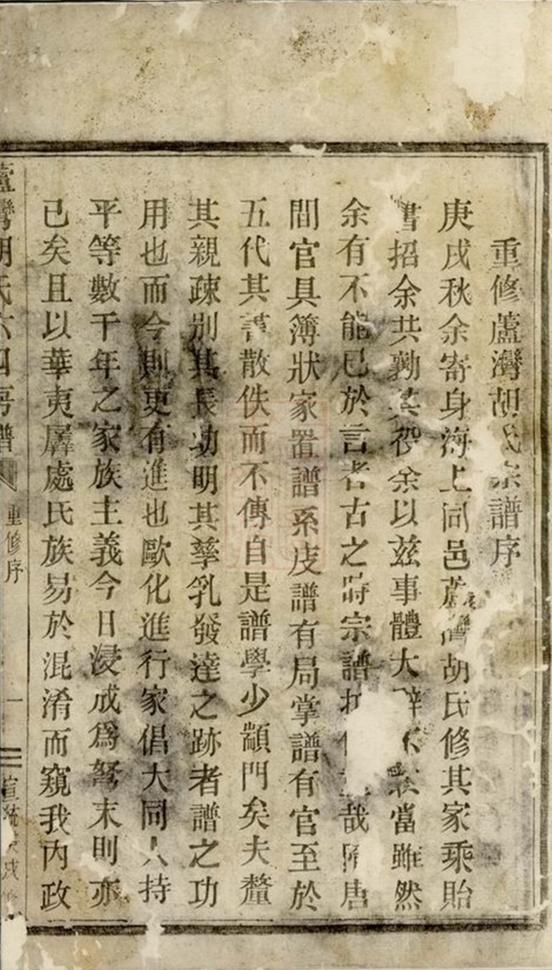 重修蘆灣胡氏宗譜序
庚戌秋余寄身海上同邑蘆灣胡氏修其家乘貽
書招余共勷其役余以茲事體大辭不敢當雖然
余有不能已於言者古之時宗譜哉隋唐
間官具簿狀家置譜系庋譜有局掌譜有官至於
五代其書散佚而不傳自是譜學少顓門矣夫釐
其親疎別其長幼明其孳乳發達之跡者譜之功
用也而今則更有進也歐化進行家倡大同人持
平等數千年之家族主義今日浸成爲弩末則亦
已矣且以華夷羼處氏族易於混淆而窺我內政
蘆灣胡氏六四房譜
重修序
一
宣統庚戌修